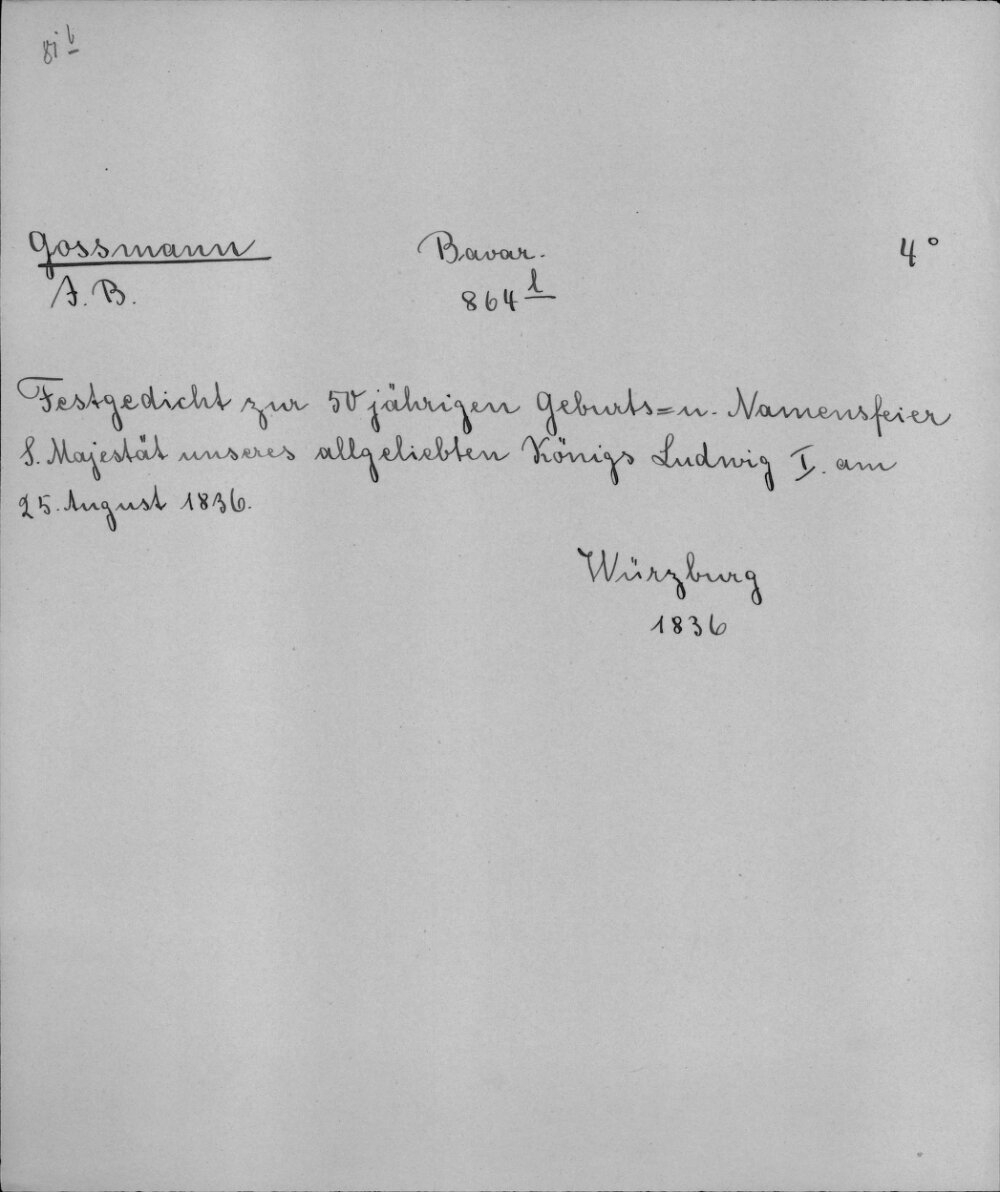 Gossmann Bavar. 4°
J. B. 864 l
Festgedicht zur 50jährigen Geburts=u. Namensfeier
S. Majestät unseres allgeliebten Königs Ludwig I. am
25. August 1836.
Würzburg
1836